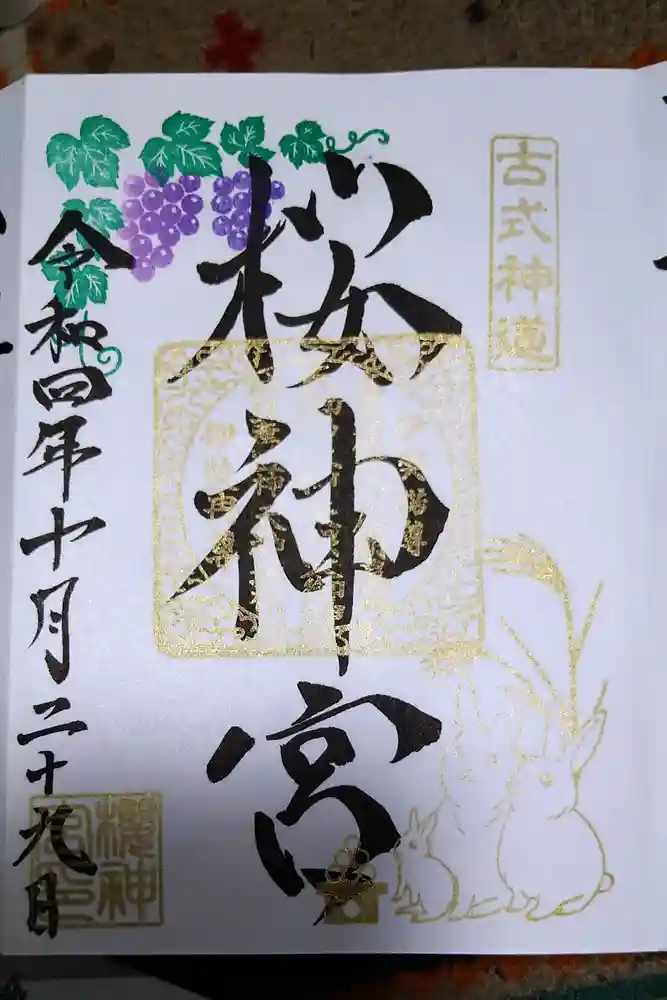 古式神道
桜神宮
令和四年十月二十九日
櫻神
宮印